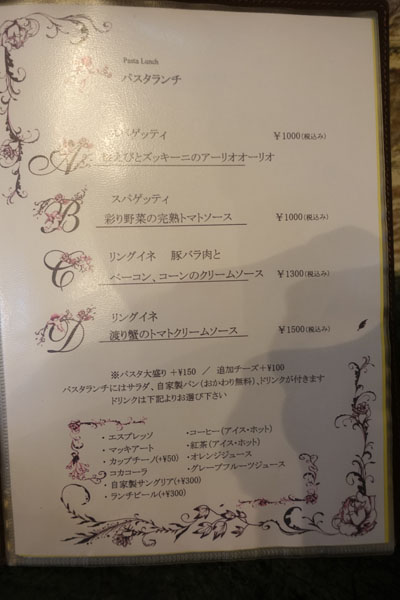 Pasta Lunch
パスタランチ
スパゲッティ ￥1000(税込み)
A えびとズッキーニのアーリオオーリオ
スパゲッティ
B 彩り野菜の完熟トマトソース ￥1000(税込み)
リングイネ 豚バラ肉と
C ベーコン、コーンのクリームソース ￥1300(税込み)
リングイネ
D 渡り蟹のトマトクリームソース ￥1500(税込み)
※パスタ大盛り +¥150 ／ 追加チーズ+¥100
パスタランチにはサラダ、自家製パン(おかわり無料)、ドリンクが付きます
ドリンクは下記よりお選び下さい
・エスプレッソ
・マッキアート
・カップチーノ(+¥50)
・コカコーラ
・自家製サングリア(+¥300)
・ランチビール(+¥300)
・コーヒー(アイス・ホット)
・紅茶(アイス・ホット)
・オレンジジュース
・グレープフルーツジュース